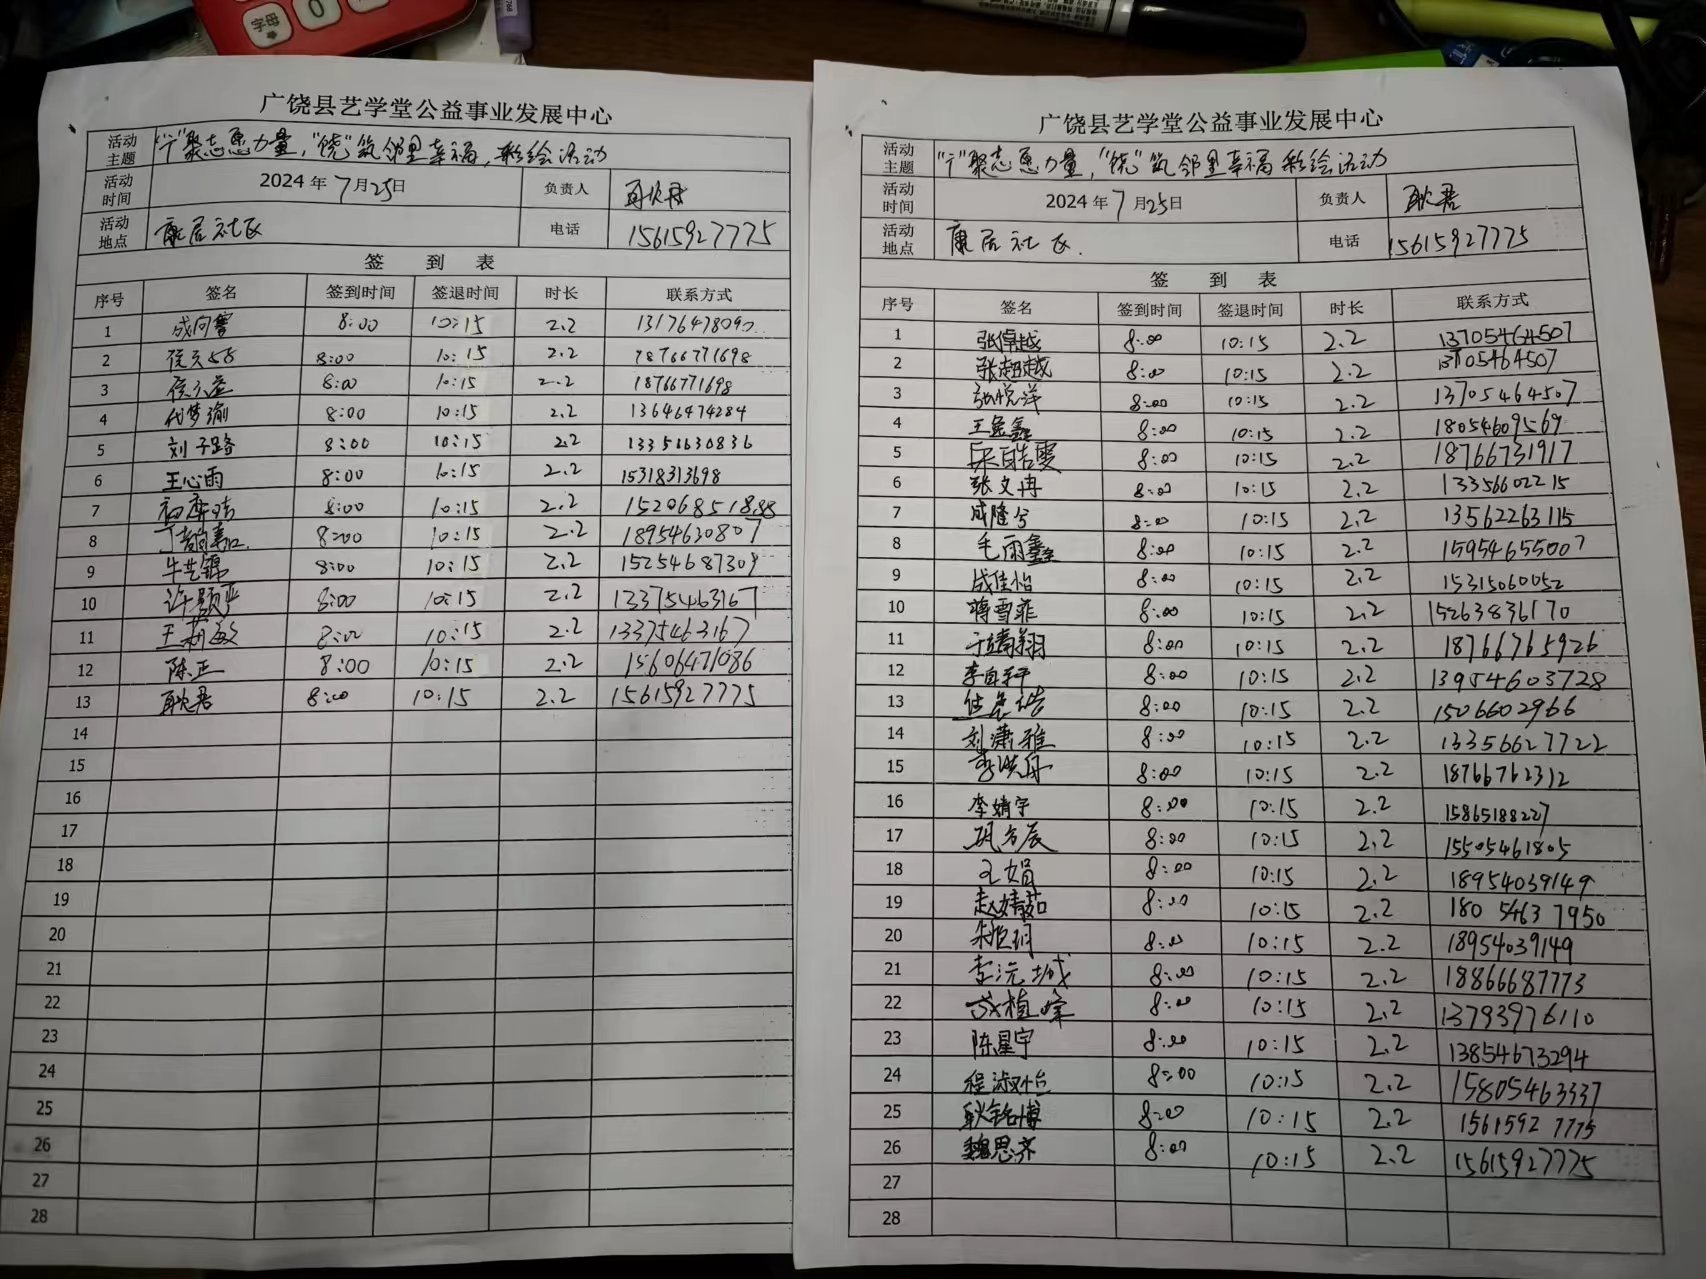 广饶县艺学堂公益事业发展中心
活动主题 "广"聚志愿力量，"饶"筑邻里幸福，彩绘活动
活动时间 2024年7月25日 负责人 耿君
活动地点 康居社区 电话 15615927775
签 到 表
序号 签名 签到时间 签退时间 时长 联系方式
1 成向雪 8:00 10:15 2.2 13176478090
2 8:00 10:15 2.2 18766771698
3 8:00 10:15 2.2 18766771698
4 代梦瑜 8:00 10:15 2.2 13646474284
5 刘子路 8:00 10:15 2.2 13351630836
6 王心雨 8:00 10:15 2.2 15318313698
7 8:00 10:15 2.2
8 8:00 10:15 2.2 18954630807
9 牛艺锦 8:00 10:15 2.2 15254687309
10 8:00 10:15 2.2 13375463167
11 8:00 10:15 2.2 13375463167
12 陈正 8:00 10:15 2.2 15606471086
13 耿君 8:00 10:15 2.2 15615927775
14
15
16
17
18
19
20
21
22
23
24
25
26
27
28
广饶县艺学堂公益事业发展中心
活动主题 "广"聚志愿力量，"饶"筑邻里幸福 彩绘活动
活动时间 2024年7月25日 负责人 耿君
活动地点 康居社区. 电话 15615927775
签 到 表
序号 签名 签到时间 签退时间 时长 联系方式
1 张倬越 8:00 10:15 2.2 13705464507
2 张超越 8:00 10:15 2.2 13705464507
3 张悦洋 8:00 10:15 2.2 13705464507
4 8:00 10:15 2.2 18054609569
5 8:00 10:15 2.2 18766731917
6 张文冉 8:00 10:15 2.2 13356602215
7 成隆兮 8:00 10:15 2.2 13562263115
8 毛雨鑫 8:00 10:15 2.2 15954655007
9 成佳怡 8:00 10:15 2.2 15315060052
10 蒋雪菲 8:00 10:15 2.2 15263836170
11 8:00 10:15 2.2 18766765926
12 8:00 10:15 2.2 13954603728
13 8:00 10:15 2.2 1506602966
14 刘潇雅 8:00 10:15 2.2 13356627722
15 李洪舟 8:00 10:15 2.2 18766762312
16 李婧宇 8:00 10:15 2.2 15865188227
17 巩方辰 8:00 10:15 2.2 15505461805
18 王娟 8:00 10:15 2.2 18954039149
19 赵婧茹 8:00 10:15 2.2 18054637950
20 8:00 10:15 2.2 18954039149
21 李沅城 8:00 10:15 2.2 18866687773
22 成植峰 8:00 10:15 2.2 13793976110
23 陈星宇 8:00 10:15 2.2 13854673294
24 程淑怡 8:00 10:15 2.2 15805463337
25 耿铭博 8:00 10:15 2.2 15615927775
26 魏思齐 8:00 10:15 2.2 15615927775
27
28